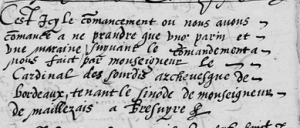 C'est Icy le comancement ou nous avons
comancé a ne prandre que ung parin et
Une maraine suyvant le comandement a
nous faict par monseigneur le
Cardinal des sourdis archevesque de
bordeaux, tenant le sinode de monseigneur
de maillezais a Bresuyre